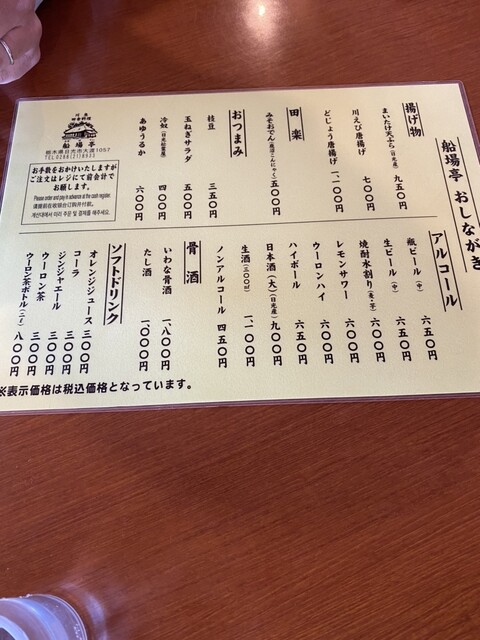 船場亭 おしながき
揚げ物
まいたけ天ぷら(日光産) 九五〇円
川えび唐揚げ 七〇〇円
どじょう唐揚げ 一、一〇〇円
田楽
みそおでん(鹿沼こんにゃく) 五〇〇円
おつまみ
枝豆 三五〇円
玉ねぎサラダ 五〇〇円
冷奴 四〇〇円
あゆうるか 六〇〇円
船場亭
栃木県日光市大渡1057
TEL0288(21)8503
お手数をおかけいたしますが
ご注文はレジにて前会計で
お願します。
Please order and pay in advance at the cash register.
请提前在收银台订购并付款。
계산대에서 미리 주문 및 결제를 해주세요.
アルコール
瓶ビール(中) 六五〇円
生ビール(中) 六五〇円
焼酎水割り(麦・芋) 六〇〇円
レモンサワー 六〇〇円
ウーロンハイ 六〇〇円
ハイボール 六五〇円
日本酒(大)(日光産) 九〇〇円
生酒(三〇〇㎖) 一、一〇〇円
ノンアルコール 四五〇円
骨酒
いわな骨酒 一、八〇〇円
たし酒 一、〇〇〇円
ソフトドリンク
オレンジジュース 三〇〇円
コーラ 三〇〇円
ジンジャエール 三〇〇円
ウーロン茶 三〇〇円
ウーロン茶ボトル(二ℓ) 八〇〇円
※表示価格は税込価格となっています。